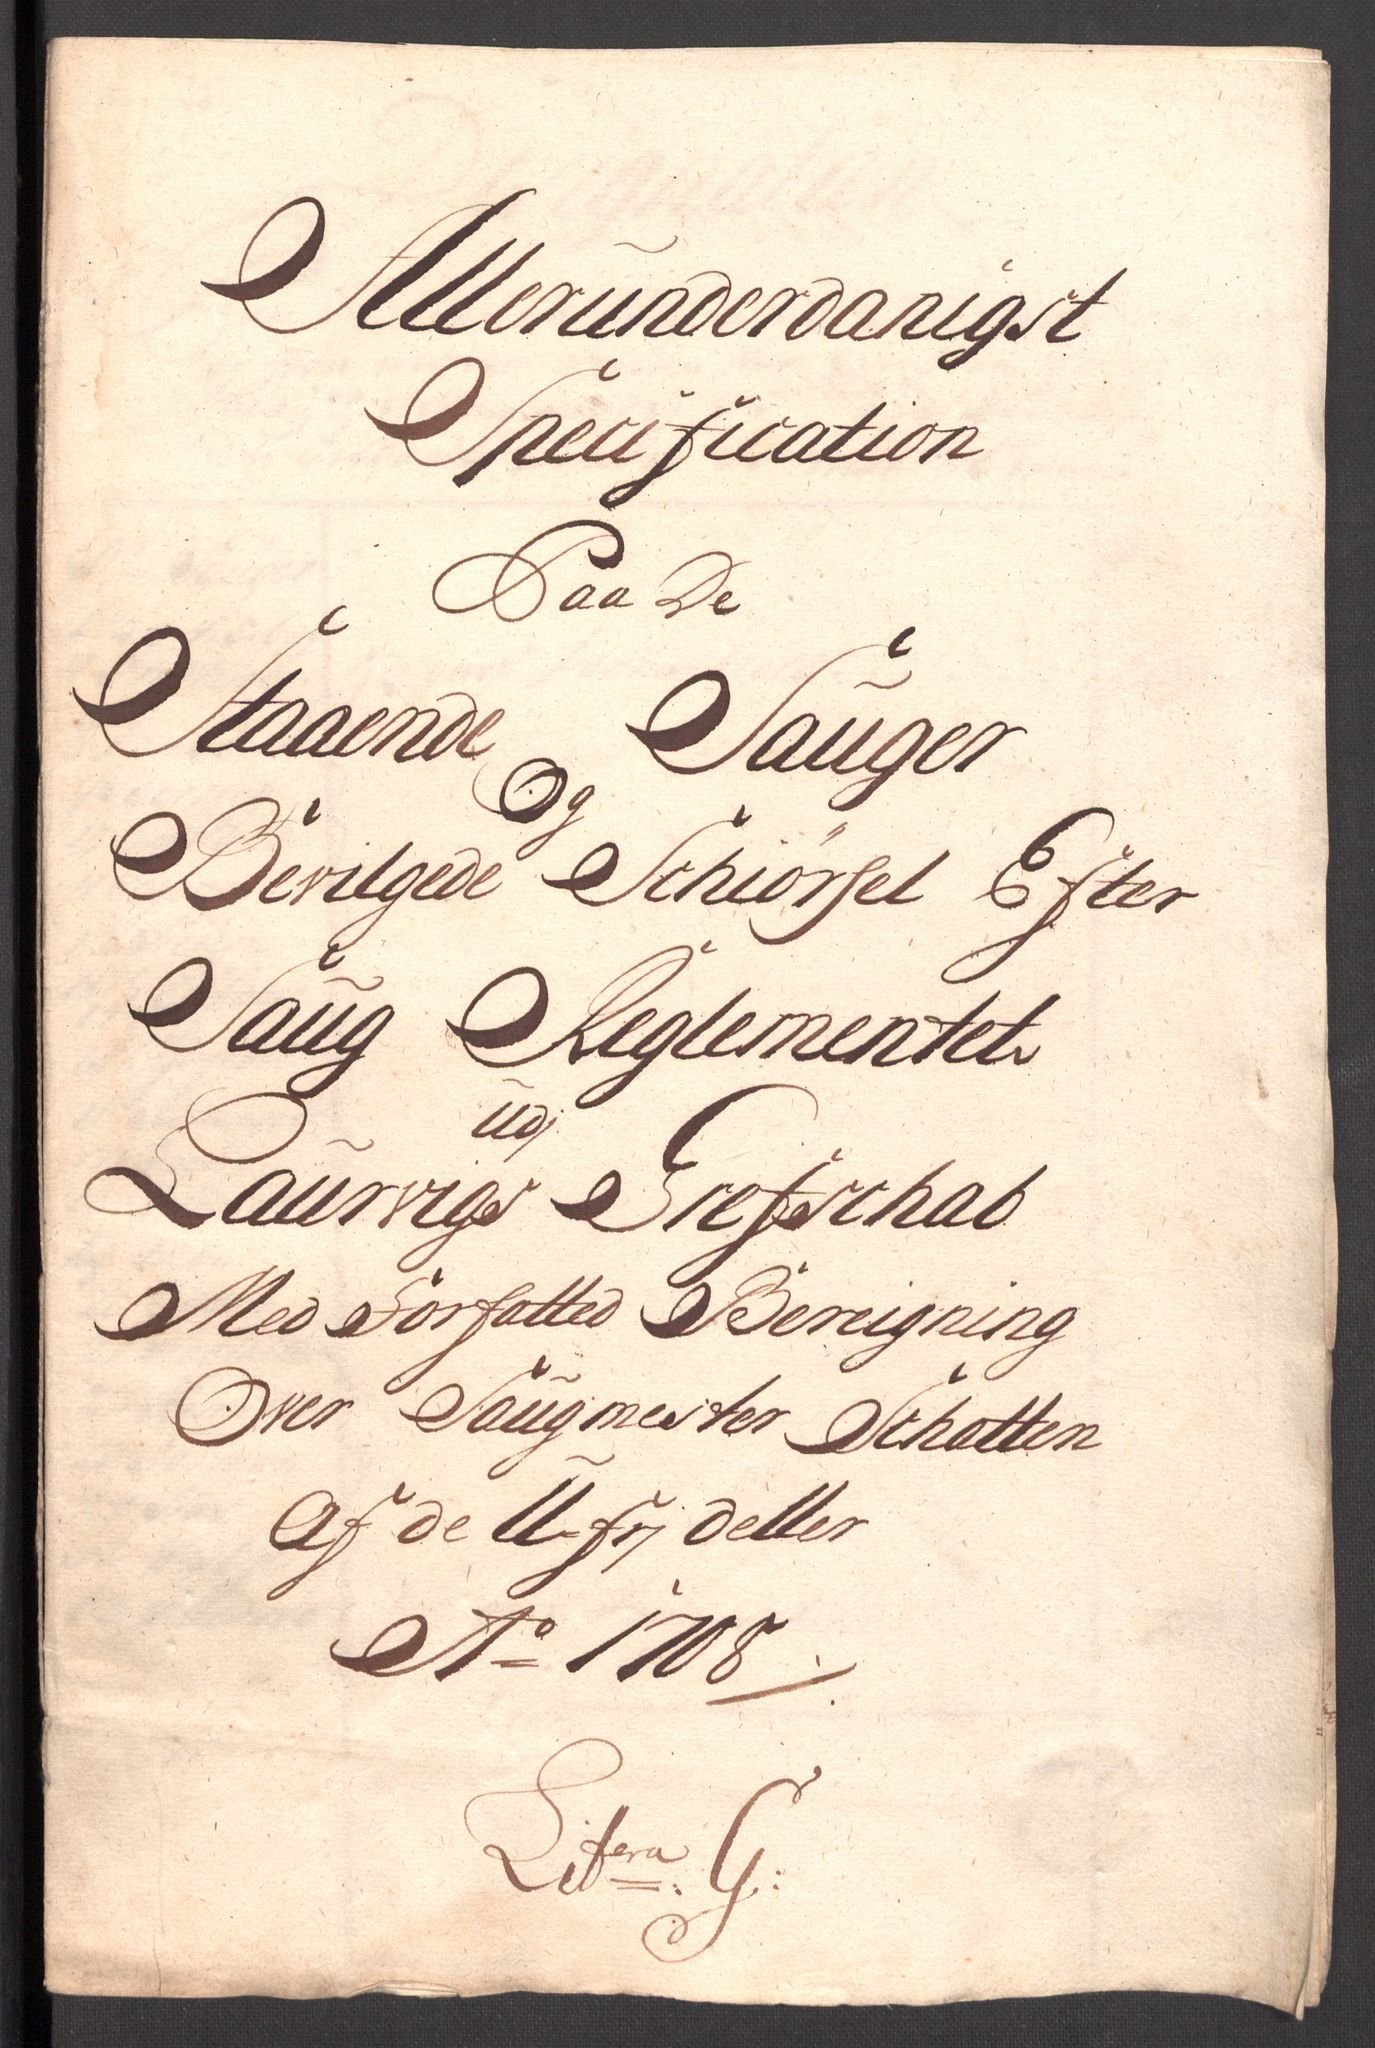 Allerunderdanigst
Specification
Paa De
Staaende Sauger
Og
Bevilgede Schiørsel Efter
Saug Reglementet
udj
Laurvigs Grefschab
Med Forfatted Bereigning
Over Saugmester Schatten
af de U-frj deller
Ao 1708
Litera: G: